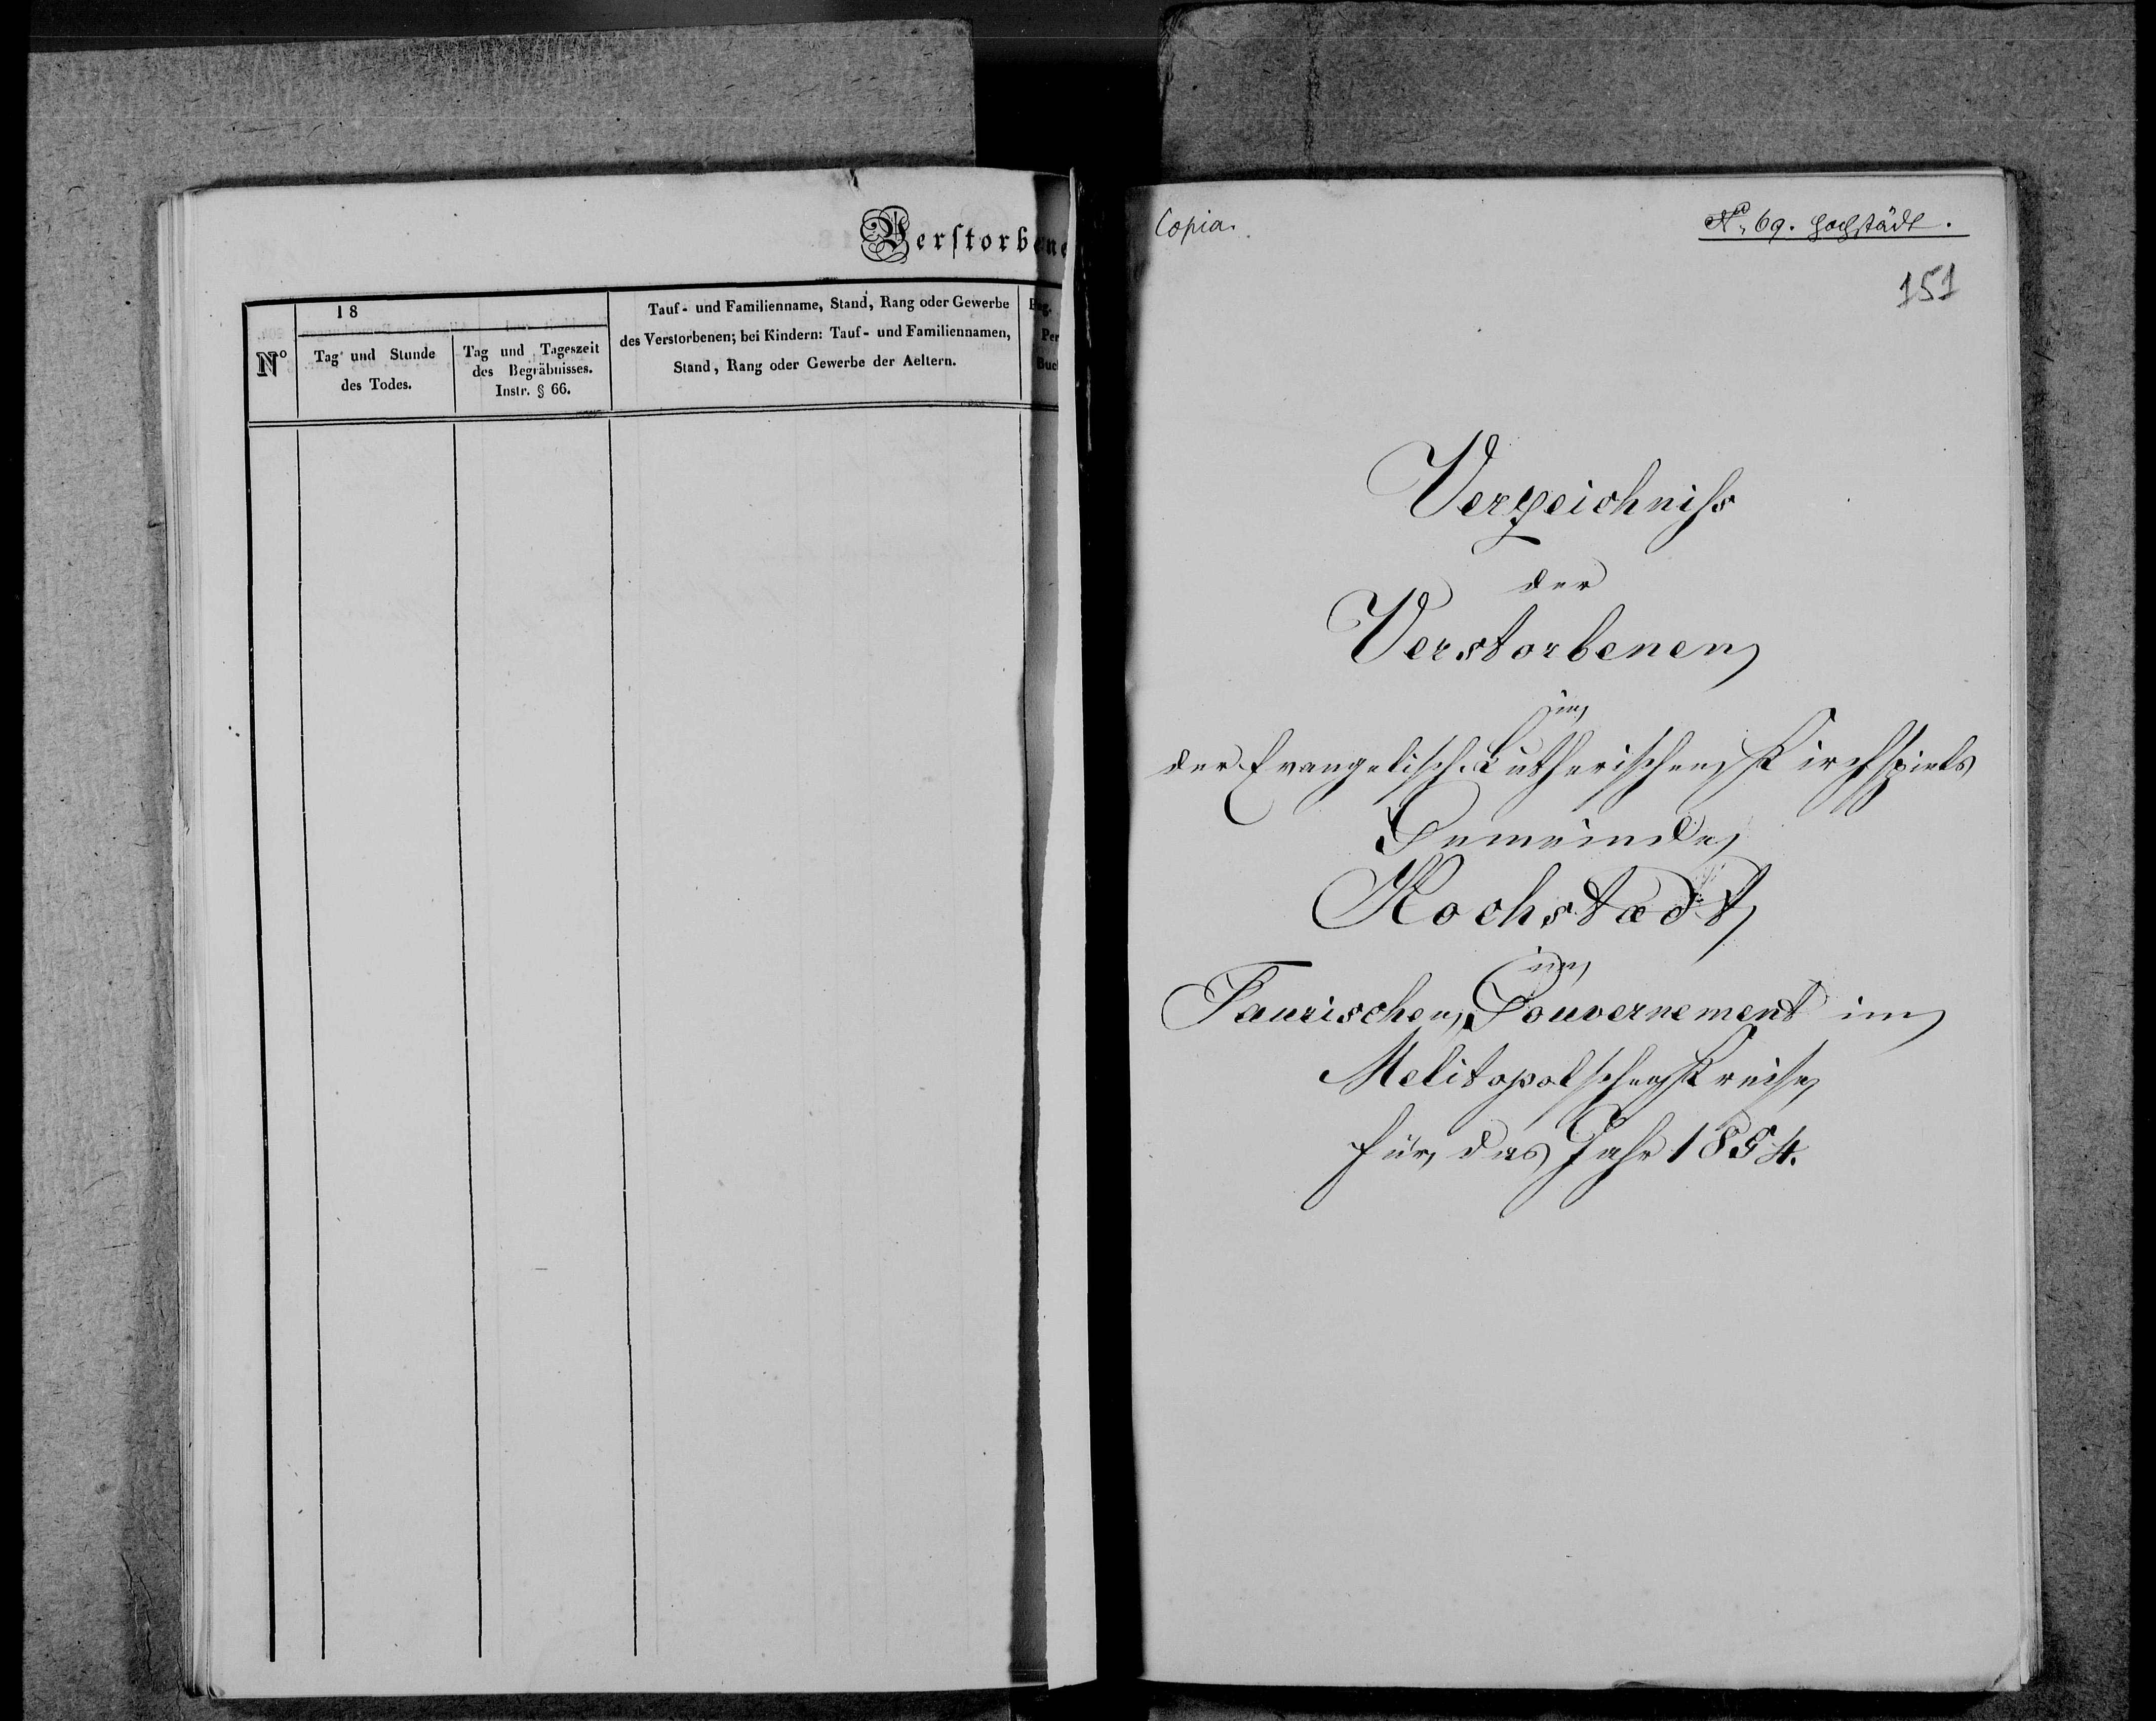 Verstorbene
18
Nº
Tag und Stunde
des Todes.
Tag und Tageszeit
des Begräbnisses.
Instr. § 66.
Tauf- und Familienname, Stand, Rang oder Gewerbe
des Verstorbenen; bei Kindern: Tauf- und Familiennamen,
Stand, Rang oder Gewerbe der Aeltern.
Pag.
Per
Buch
Copia.
No. 69. Hochstädt.
151
Verzeichniss
der
Verstorbenen
in
der Evangelisch-Lutherischen Kirchspiels
Gemeinde
Hochstædt
im
Taurischen Gouvernement im
Melitopolschen Kreise
für das Jahr 1854.